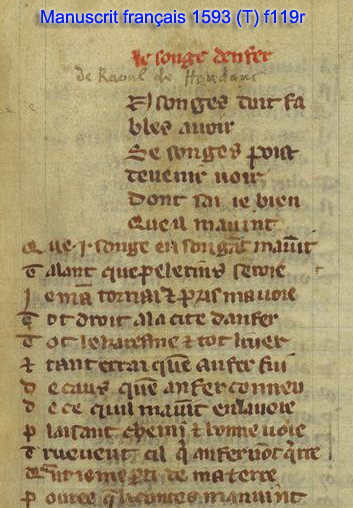 Manuscrit français 1593 (T) f119r
le songe denfer
de Raoul de Houdanc
songes doit fa
bles avoir
Se songes puet
devenir voir
Dont sai ie bien
Que il mavint
Que .i. songe en songāt mavīt
Talant que pelerins seroie
Ie mā tornai ⁊ pris ma voie
Tot droit a la cite danfer
Tot le karesme ⁊ tot liver
⁊ tant errai que anfer fui
de caus que anfer connui
de ce quil mavīt en la voie
plaisant chemī ⁊ bonne voie
truevent cil q̄ anfer vont q̄rre
Quāt ie me pti de ma terre